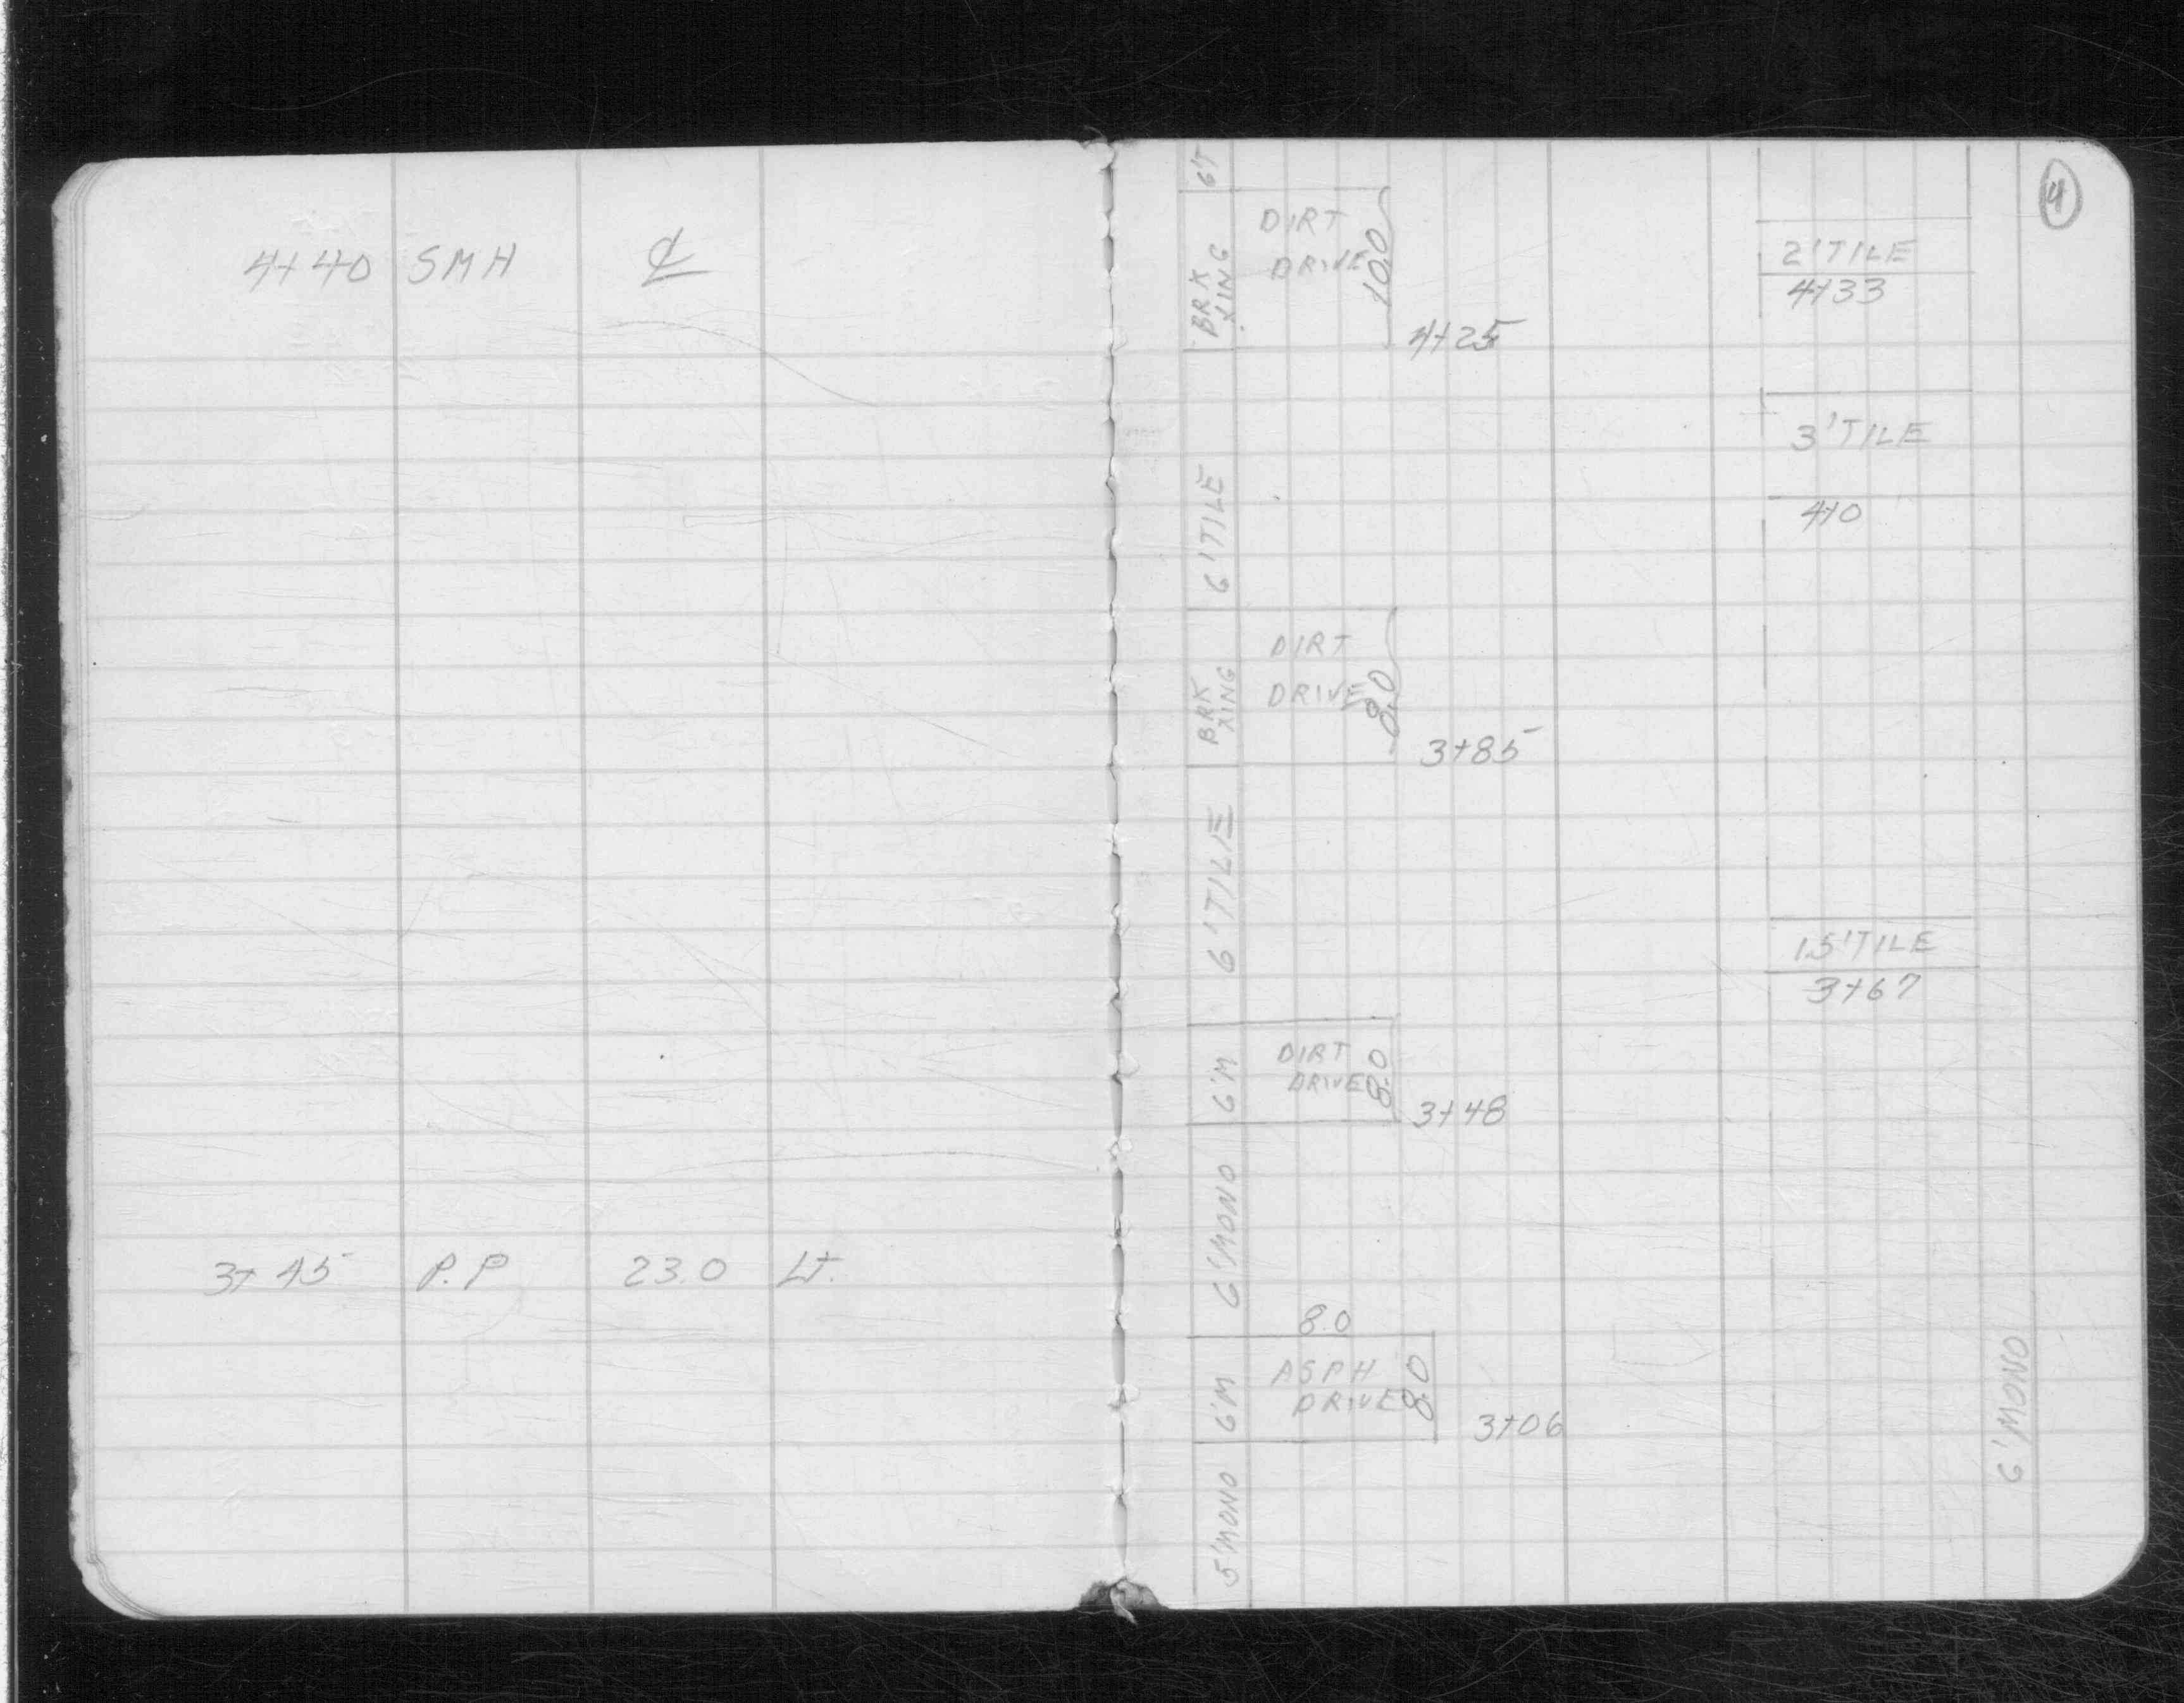 4+40 SMH ℄
3+45 P.P 23.0 Lt.
4
6'T
DIRT
DRIVE
10.0
BRK
XING
4+25
2'TILE
4+33
3'TILE
4+0
6'TILE
DIRT
DRIVE
8.0
BRK
XING
3+85
6'TILE
1.5'TILE
3+67
DIRT
DRIVE
8.0
6'M
3+48
6'MONO
8.0
ASPH
DRIVE
8.0
6'M
3+06
5'MONO
6'MONO